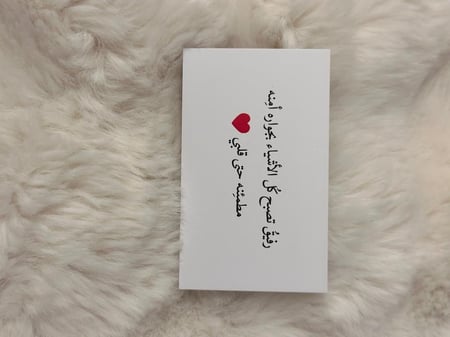 رفيقُ تصبح كُل الأشياء بجواره أمِنه
مطمئِنه حتى قلبي